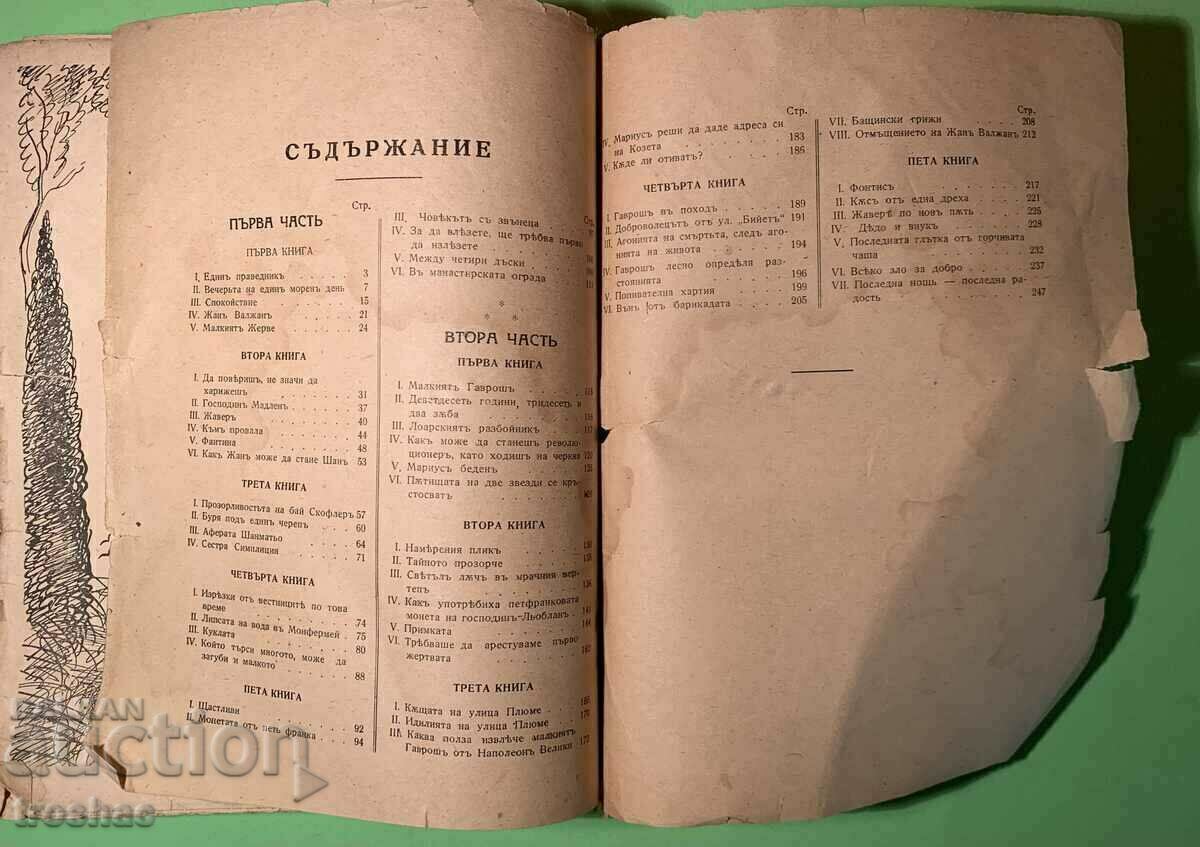 СЪДЪРЖАНИЕ
Стр.
ПЪРВА ЧАСТЬ
ПЪРВА КНИГА
I. Единъ праведникъ . . . . . . 3
II. Вечерьта на единъ морен день 7
III. Спокойствие . . . . . . . 15
IV. Жанъ Валжанъ . . . . . . 21
V. Малкиятъ Жерве . . . . . 24
ВТОРА КНИГА
I. Да повѣришъ, не значи да
харижешъ . . . . . . . 31
II. Господинъ Мадленъ . . . . . 37
III. Жаверъ . . . . . . . . 40
IV. Къмъ провала . . . . . . 44
V. Фантина . . . . . . . . 48
VI. Какъ Жанъ може да стане Шанъ 53
ТРЕТА КНИГА
I. Прозорливостьта на бай Скофлеръ 57
II. Буря подъ единъ черепъ . . . 60
III. Аферата Шанматьо . . . . . 64
IV. Сестра Симплиция . . . . . 71
ЧЕТВЪРТА КНИГА
I. Изрѣзки отъ вестницитѣ по това
време . . . . . . . . 74
II. Липсата на вода въ Монфермей . 75
III. Куклата . . . . . . . . 80
IV. Който търси многото, може да
загуби и малкото . . . . . 88
ПЕТА КНИГА
I. Щастливи . . . . . . . 92
II. Монетата отъ петь франка . . . 94
Стр.
III. Човѣкътъ съ звънеца
IV. За да влѣзете, ще трѣбва първо
да излѣзете . . . . . .
V. Между четири дъски . . . . .
VI. Въ манастирската ограда . . . .
* * *
ВТОРА ЧАСТЬ
ПЪРВА КНИГА
I. Малкиятъ Гаврошъ . . . . .
II. Деветдесетъ години, тридесетъ и
два зѫба . . . . . . .
III. Лоарскиятъ разбойникъ . . . .
IV. Какъ може да станешъ револю-
ционеръ, като ходишъ на черква 120
V. Мариусъ беденъ . . . . . .
VI. Пѫтищата на две звезди се кръ-
стосватъ . . . . . . .
ВТОРА КНИГА
I. Намѣрения пликъ . . . . . .
II. Тайното прозорче . . . . . .
III. Свѣтълъ лѫчъ въ мрачния вер-
тепъ . . . . . . . .
IV. Какъ употрѣбиха петфранковата
монета на господинъ-Льобланъ .
V. Примката . . . . . . . .
VI. Трѣбваше да арестуваме първо
жертвата . . . . . . .
ТРЕТА КНИГА
I. Кѫщата на улица Плюме . . .
II. Идилията на улица Плюме . . . 170
III. Каква полза извлѣче малкиятъ
Гаврошъ отъ Наполеонъ Велики .
Стр.
IV. Мариусъ реши да даде адреса си
на Козета . . . . . . . 183
V. Кѫде ли отиватъ? . . . . . 186
ЧЕТВЪРТА КНИГА
I. Гаврошъ въ походъ . . . . . 189
II. Доброволецътъ отъ ул. „Бийетъ“ 191
III. Агонията на смъртьта, следъ аго-
нията на живота . . . . . 194
IV. Гаврошъ лесно опредѣля раз-
стоянията . . . . . . . 196
V. Попивателна хартия . . . . . 199
VI. Вънъ отъ барикадата . . . . 205
Стр.
VII. Бащински грижи . . . . . 208
VIII. Отмъщението на Жанъ Валжанъ 212
ПЕТА КНИГА
I. Фонтисъ . . . . . . . . 217
II. Кѫсъ отъ една дреха . . . . . 221
III. Жаверъ по новъ пѫть . . . . 225
IV. Дѣдо и внукъ . . . . . . 228
V. Последната глътка отъ горчивата
чаша . . . . . . . . 232
VI. Всѣко зло за добро . . . . . 237
VII. Последна нощь — последна ра-
дость . . . . . . . . 247
BALKAN
auction
troshac